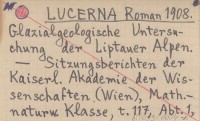 LUCERNA Roman 1908.
Glazialgeologische Untersu-
chung der Liptauer Alpen.
— Sitzungsberichten der
Kaiserl. Akademie der Wis-
senschaften (Wien), Math.-
naturw. Klasse, t. 117, Abt. 1,